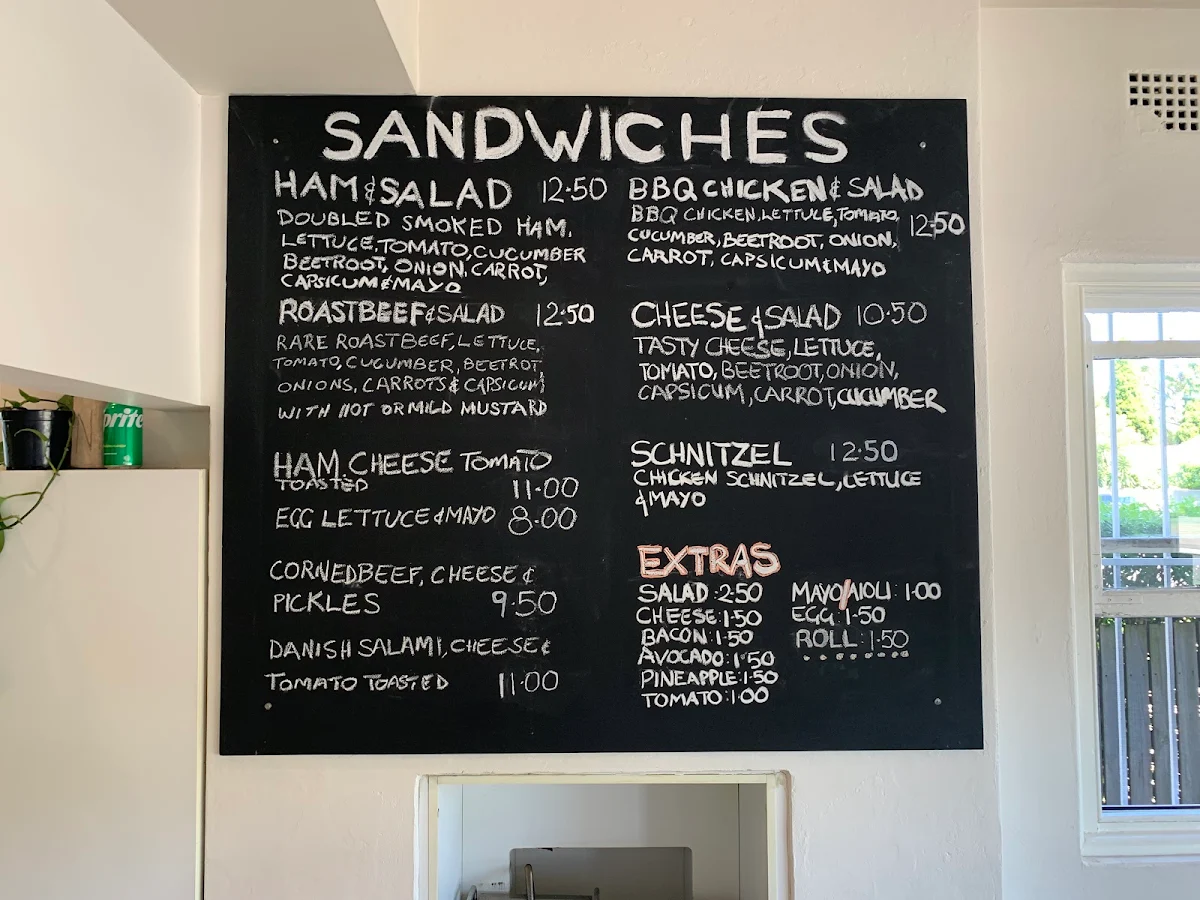 SANDWICHES
HAM & SALAD 12·50
DOUBLED SMOKED HAM,
LETTUCE, TOMATO, CUCUMBER
BEETROOT, ONION, CARROT,
CAPSICUM & MAYO
ROASTBEEF & SALAD 12·50
RARE ROASTBEEF, LETTUCE,
TOMATO, CUCUMBER, BEETROT,
ONIONS, CARROTS & CAPSICUM
WITH HOT OR MILD MUSTARD
HAM, CHEESE TOMATO
TOASTED 11·00
EGG LETTUCE & MAYO 8·00
CORNEDBEEF, CHEESE &
PICKLES 9·50
DANISH SALAMI, CHEESE &
TOMATO TOASTED 11·00
BBQ CHICKEN & SALAD
BBQ CHICKEN, LETTUCE, TOMATO, 12·50
CUCUMBER, BEETROOT, ONION,
CARROT, CAPSICUM & MAYO
CHEESE & SALAD 10·50
TASTY CHEESE, LETTUCE,
TOMATO, BEETROOT, ONION,
CAPSICUM, CARROT, CUCUMBER
SCHNITZEL 12·50
CHICKEN SCHNITZEL, LETTUCE
& MAYO
EXTRAS
SALAD: 2·50
CHEESE: 1·50
BACON: 1·50
AVOCADO: 1·50
PINEAPPLE: 1·50
TOMATO: 1·00
MAYO/AIOLI: 1·00
EGG: 1·50
ROLL: 1·50
Sprite